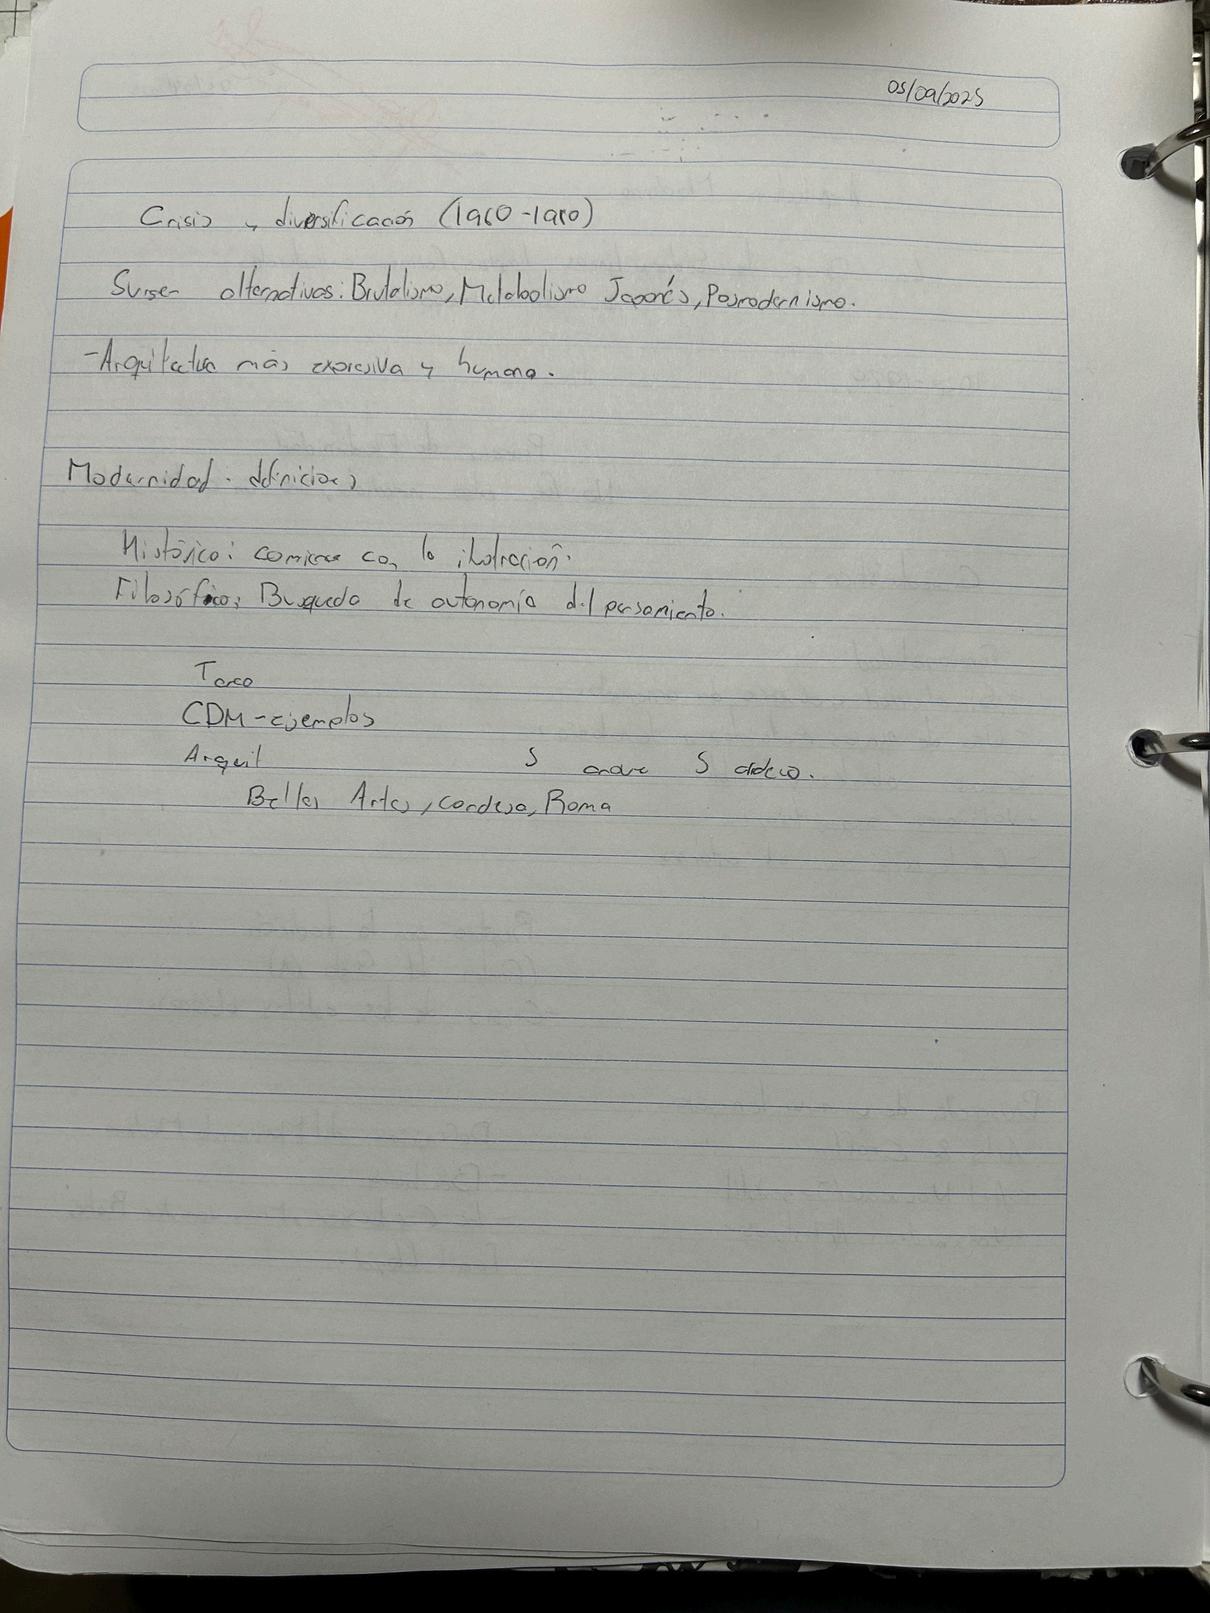 05/09/2025
Crisis y diversificación (1960-1980)
Surgen alternativas: Brutalismo, Metabolismo Japonés, Posmodernismo.
-Arquitectura más expresiva y humana.
Modernidad. definiciones
Histórico: comienza con la ilustración.
Filosófico: Busqueda de autonomía del pensamiento.
Tarea
CDM-ejemplos
Arquit 5 5 ardeco.
Bellas Artes, Condesa, Roma